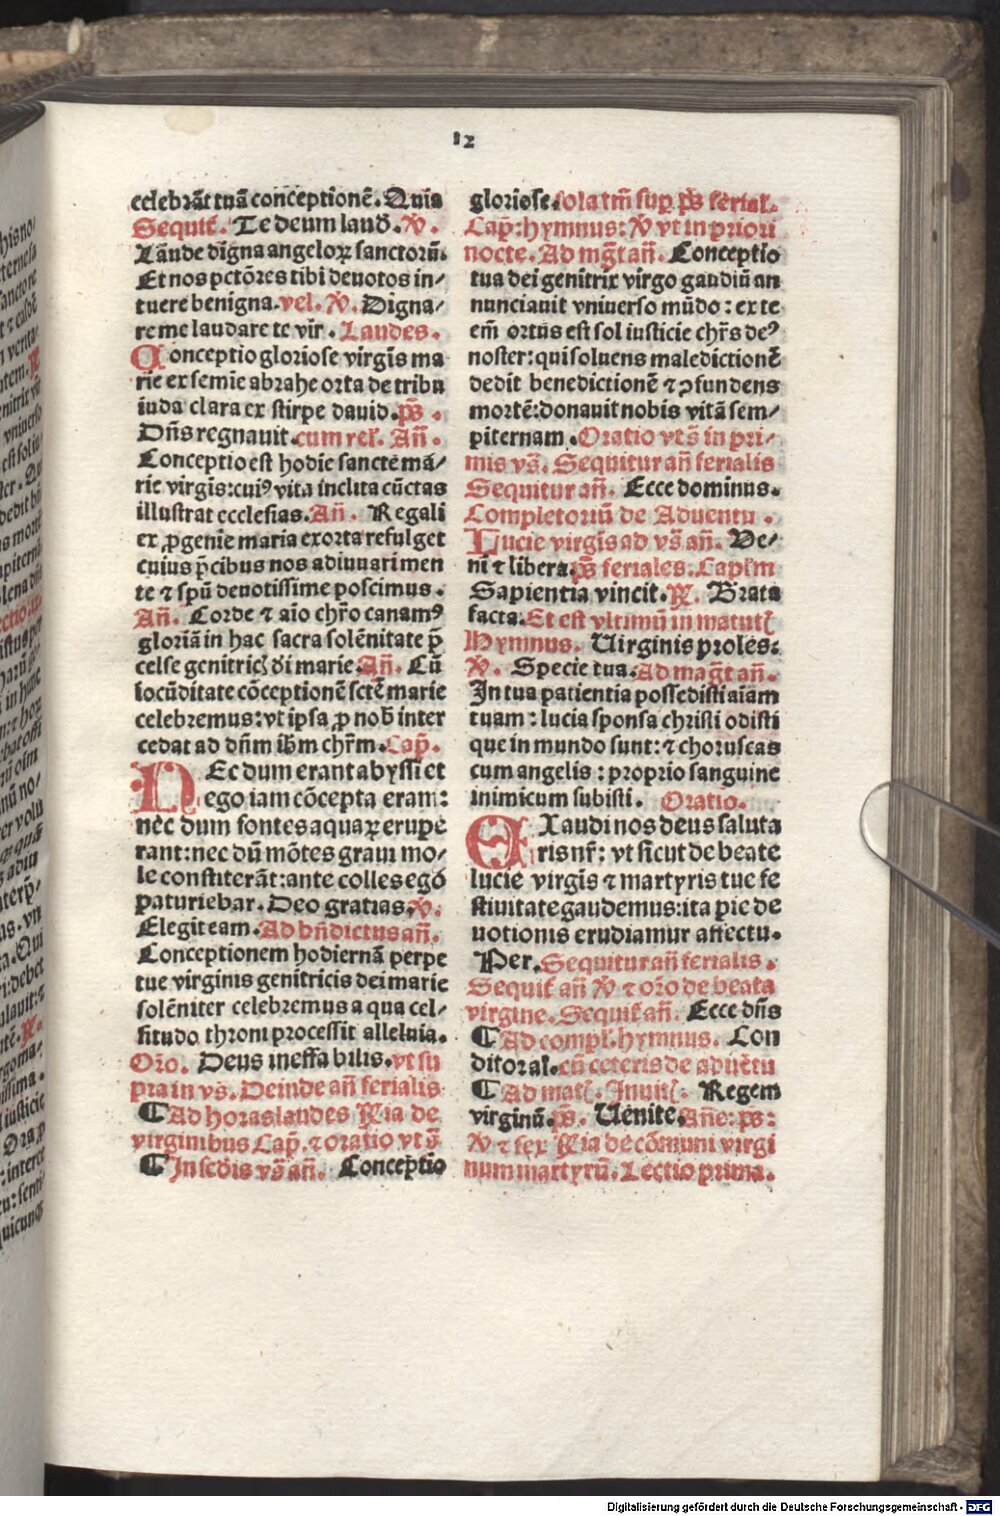 12
celebrāt tuā conceptionē. Quia
Sequit̄. Te deum laud̄. V̄.
Laude digna angeloꝝ sanctorū.
Et nos pctōres tibi deuotos in-
tuere benigna. vel. V̄. Digna-
re me laudare te vir̄. Laudes.
Conceptio gloriose virgīs ma
rie ex semīe abrahe orta de tribu
iuda clara ex stirpe dauid. ps̄.
Dn̄s regnauit. cum rel̄. An̄.
Conceptio est hodie sancte ma-
rie virgīs: cuiꝰ vita inclita cūctas
illustrat ecclesias. An̄. Regali
ex ꝓgenie maria exorta refulget
cuius p̄cibus nos adiuuari men
te ⁊ spū deuotissime poscimus.
An̄. Corde ⁊ aīo chr̄o canamꝰ
gloriā in hac sacra solēnitate p̄
celse genitricꝭ di marie. An̄. Cū
iocūditate cōceptionē scte marie
celebremus: vt ipsa ꝓ nob̄ inter
cedat ad dn̄m ih̄m chr̄m. Cap̄.
NEc dum erant abyssi et
ego iam cōcepta eram:
nec dum fontes aquaꝝ erupe
rant: nec dū mōtes graui mo-
le constiterāt: ante colles ego
parturiebar. Deo gratias. V̄.
Elegit eam. Ad bn̄dictus an̄.
Conceptionem hodiernā perpe
tue virginis genitricis dei marie
solēniter celebremus a qua cel-
situdo throni processit alleluia.
Oro. Deus ineffabilis. vt su
pra in vs̄. Deinde an̄ ferialis
¶ Ad horas laudes R̄ia de
virginibus Cap̄. ⁊ oratio vt s̄
¶ In sedis vs̄ an̄. Conceptio
gloriose. sola tm̄ sup̄ ps̄ ferial.
Cap̄: hymnus: V̄ vt in priori
nocte. Ad mḡt an̄. Conceptio
tua dei genitrix virgo gaudiū an
nunciauit vniuerso mūdo: ex te
em̄ ortus est sol iusticie chr̄s deꝰ
noster: qui soluens maledictionē
dedit benedictionē ⁊ ꝯfundens
mortē: donauit nobis vitā sem-
piternam. Oratio vt s̄ in pri-
mis vs̄. Sequitur an̄ ferialis
Sequitur an̄. Ecce dominus.
Completoriū de Aduentu.
Lucie virgīs ad vs̄ an̄. Ve-
ni ⁊ libera. ps̄ feriales. Cap̄lm
Sapientia vincit. R̄. Brata
facta. Et est vltimū in matutꝭ
Hymnus. Uirginis proles:
V̄. Specie tua. Ad maḡt an̄.
In tua patientia possedisti aīam
tuam: lucia sponsa christi odisti
que in mundo sunt: ⁊ choruscas
cum angelis: proprio sanguine
inimicum subisti. Oratio.
EXaudi nos deus saluta
ris nr̄: vt sicut de beate
lucie virgīs ⁊ martyris tue fe
stiuitate gaudemus: ita pie de
uotionis erudiamur affectu.
Per. Sequitur an̄ ferialis.
Sequit̄ an̄ V̄ ⁊ oro de beata
virgine. Sequit̄ an̄. Ecce dn̄s
¶ Ad compl. hymnus. Con
ditor al. cū ceteris de aduētu
¶ Ad matꝭ. Inuitꝭ. Regem
virginū. ps̄. Uenite. Añe: ps̄:
V̄ ⁊ sex R̄ia de cōmuni virgi
num martyrū. Lectio prima.
Digitalisierung gefördert durch die Deutsche Forschungsgemeinschaft - DFG